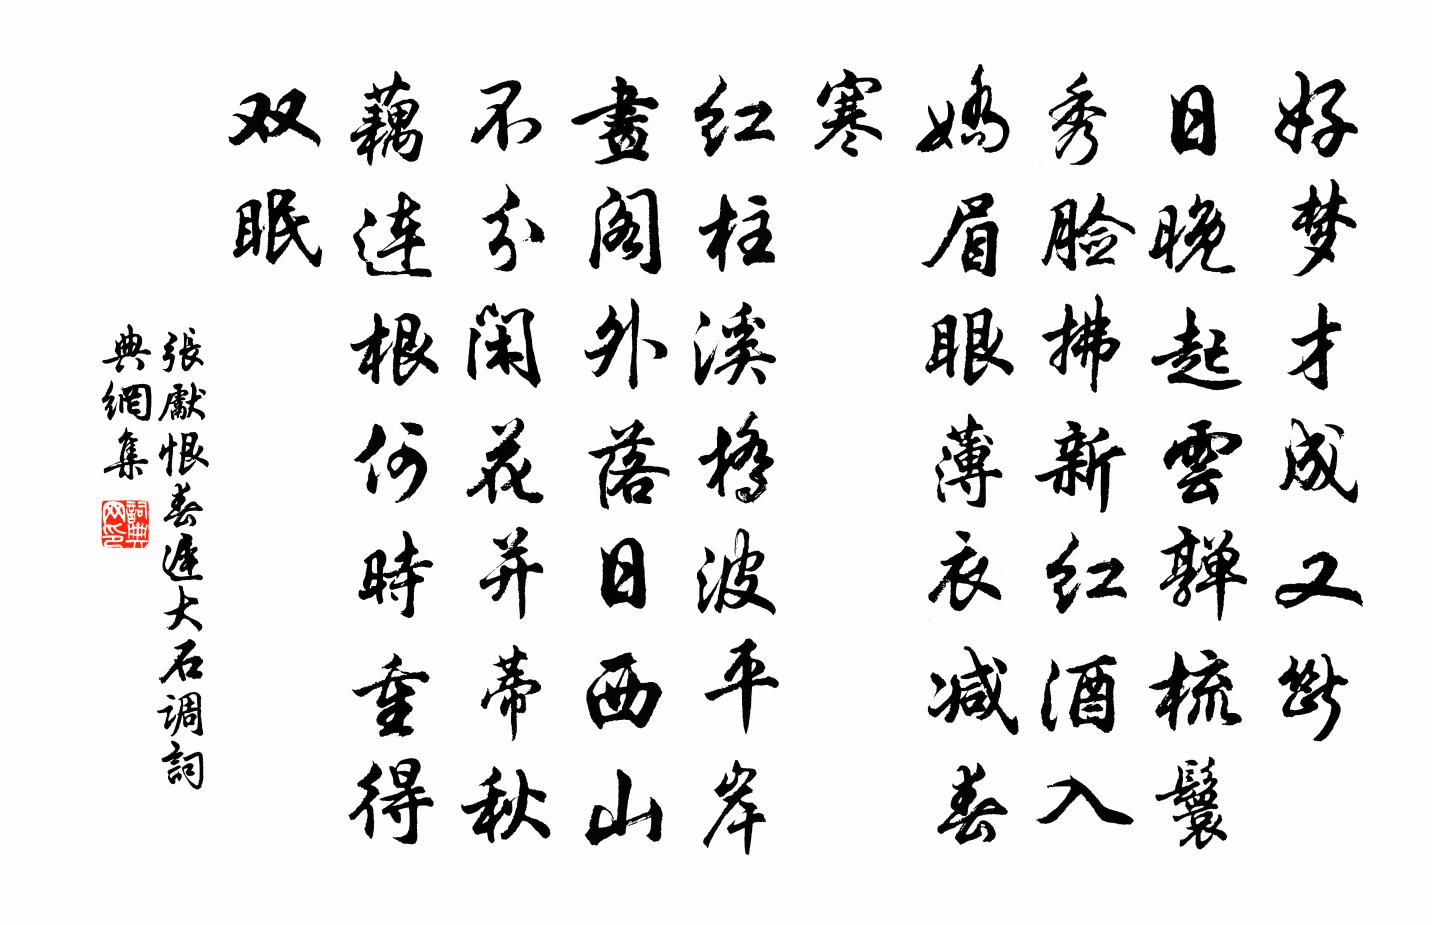 好梦才成又斷
日晚起雲嚲梳鬟
秀脸拂新红酒入
嬌眉眼薄衣减春
寒
红柱溪橋波平岸
畫阁外落日西山
不分闲花并蒂秋
藕连根何時重得
双眠
張獻恨春遲大石调詞
典網集
詞典网印